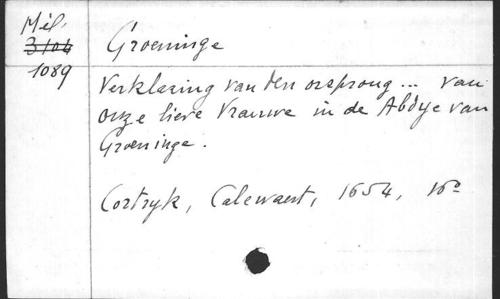 Mél.
3104
1089
Groeninge
Verklaring van den oorsprong ... van
onze lieve Vrauwe in de Abdye van
Groeninge.
Cortryk, Calewaert, 1654, 16°